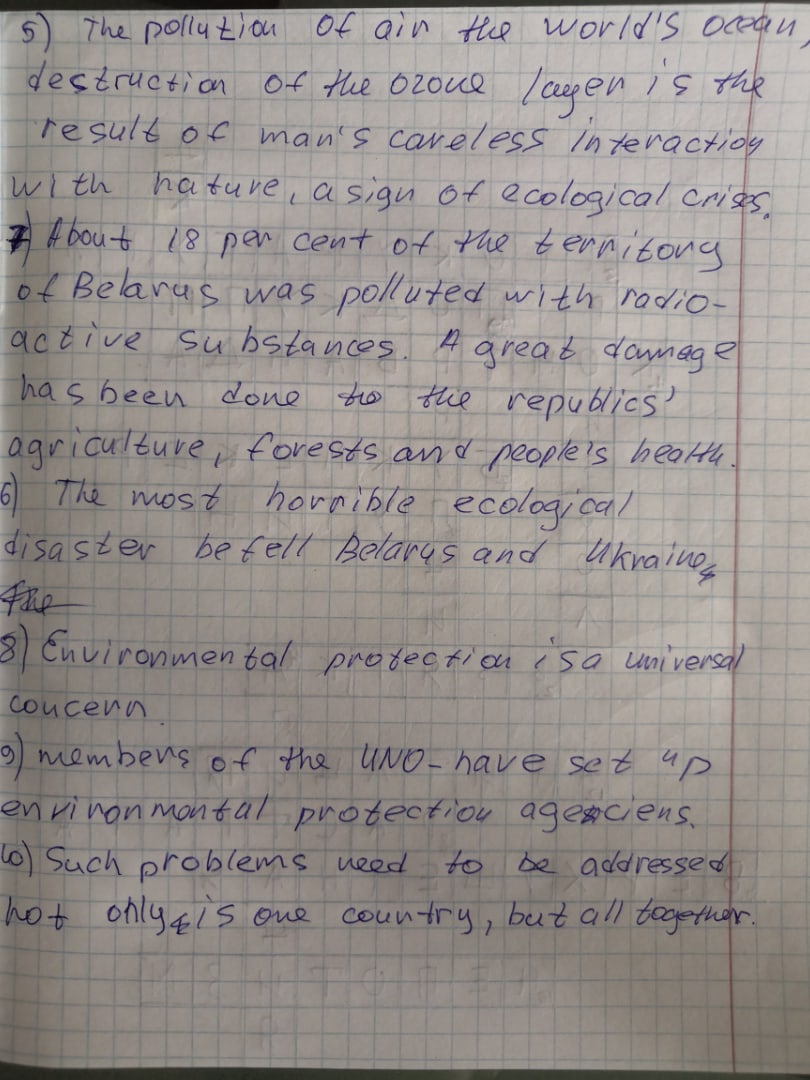 5) The pollution of air the world's ocean,
destruction of the ozone layer is the
result of man's careless interaction
with nature, a sign of ecological crises.
7) About 18 per cent of the territory
of Belarus was polluted with radio-
active substances. A great damage
has been done to the republics'
agriculture, forests and people's health.
6) The most horrible ecological
disaster befell Belarus and Ukraine,
The
8) Environmental protection is a universal
concern.
9) members of the UNO-have set up
environmontal protection agenciens.
10) Such problems need to be addressed
not only is one country, but all together.